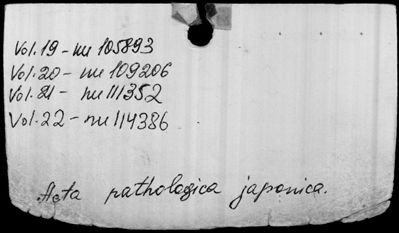 Vol.19 - nu 105893
Vol.20 - nu 109206
Vol.21 - nu 111352
Vol.22 - nu 114386
Acta pathologica japonica.